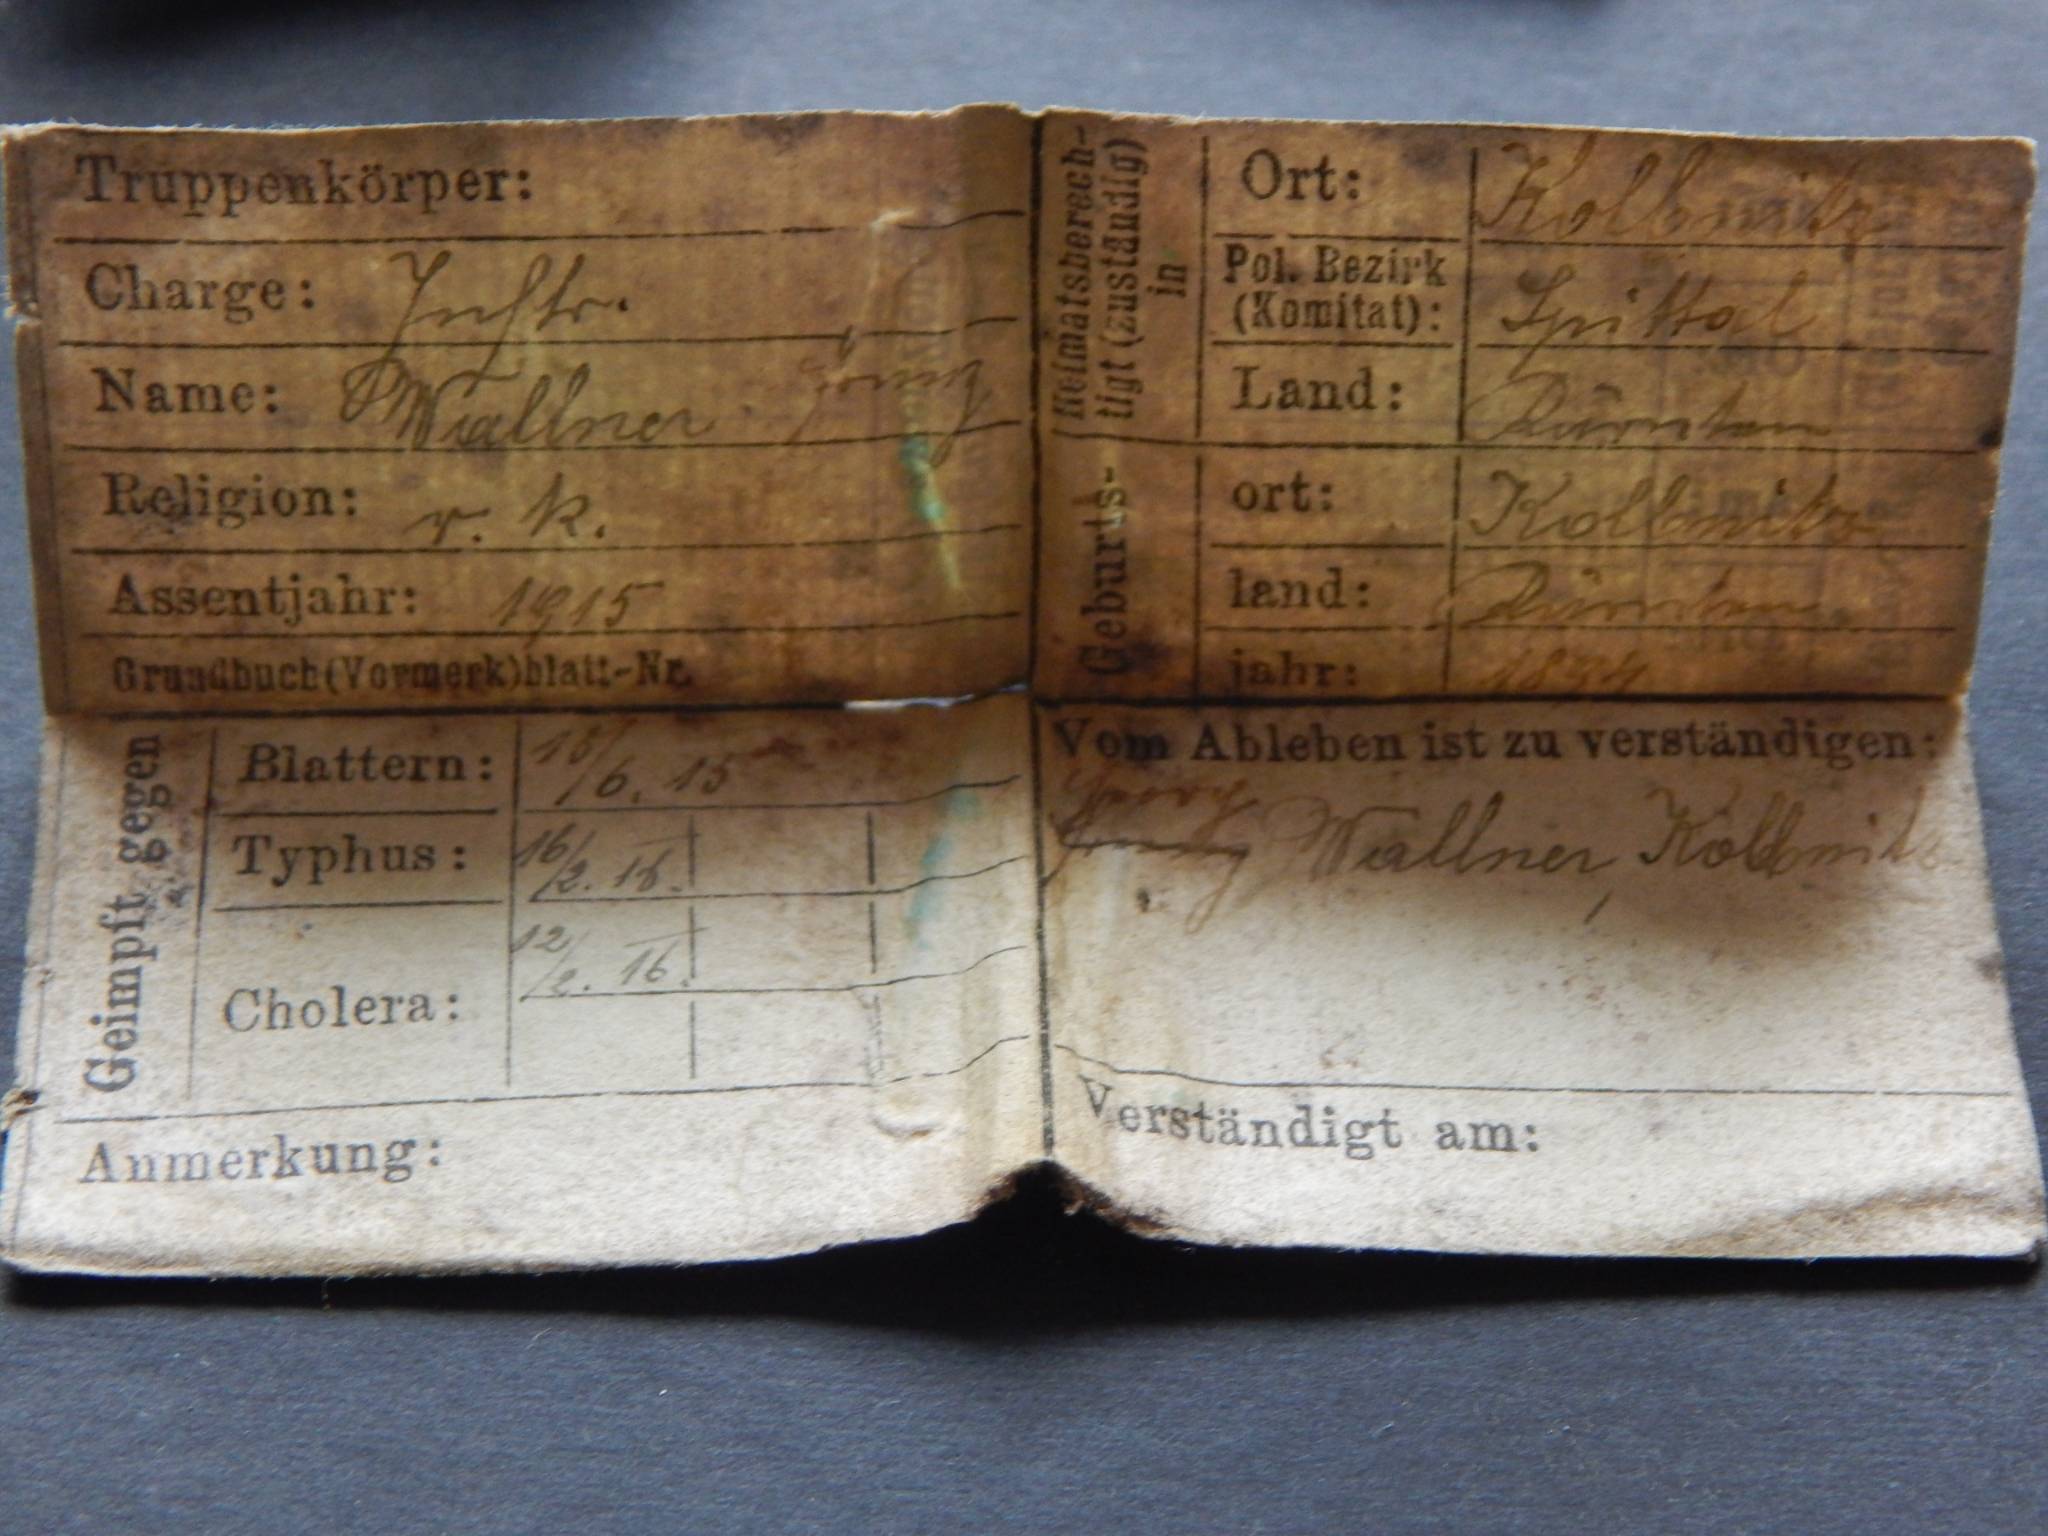 Truppenkörper:
Charge: Infstr.
Name: Wallner
Religion: r. k.
Assentjahr: 1915
Grundbuch(Vormerk)blatt-Nr.
Heimatsberech-
tigt (zuständig)
in
Ort: Kolbnitz
Pol. Bezirk
(Komitat): Spittal
Land: Kärnten
Geburts-
ort: Kolbnitz
land: Kärnten
jahr:
Geimpft gegen
Blattern: 18/6. 15
Typhus: 16/2. 16.
Cholera: 12/2. 16.
Anmerkung:
Vom Ableben ist zu verständigen:
Georg
Wallner, Kolbnitz
Verständigt am: